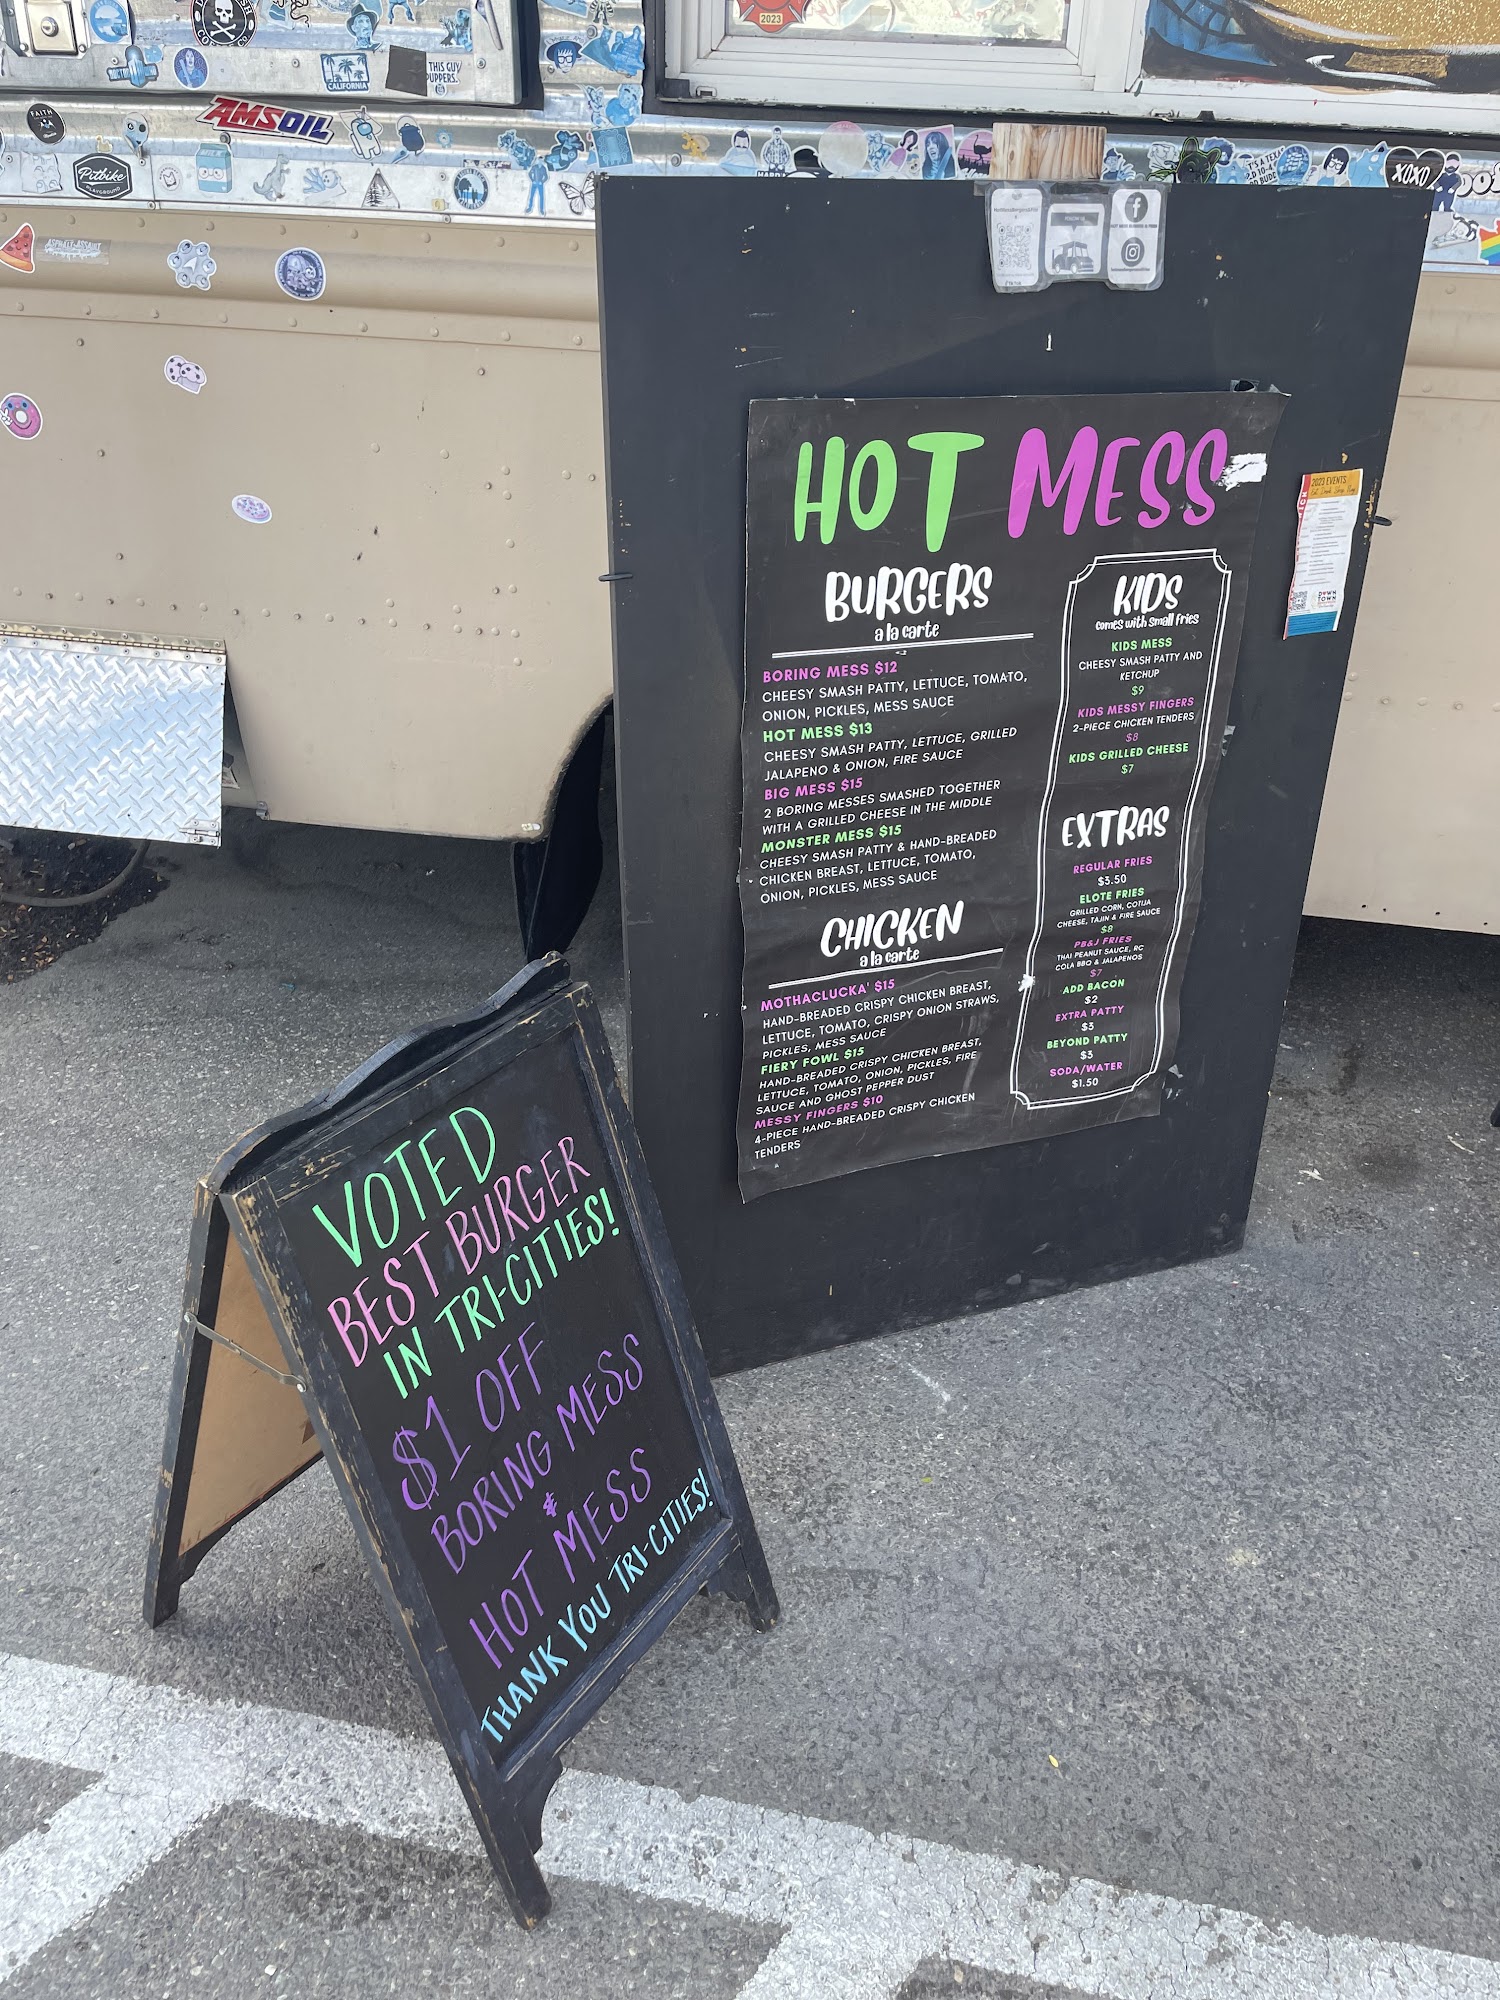 FAITH
CALIFORNIA
THIS GUY
PUPPERS.
AMSOIL
Pitbike
PLAYGROUND
2023
XOXO
ASPHALT ASSAULT
HOT MESS
BURGERS
a la carte
BORING MESS $12
CHEESY SMASH PATTY, LETTUCE, TOMATO,
ONION, PICKLES, MESS SAUCE
HOT MESS $13
CHEESY SMASH PATTY, LETTUCE, GRILLED
JALAPENO & ONION, FIRE SAUCE
BIG MESS $15
2 BORING MESSES SMASHED TOGETHER
WITH A GRILLED CHEESE IN THE MIDDLE
MONSTER MESS $15
CHEESY SMASH PATTY & HAND-BREADED
CHICKEN BREAST, LETTUCE, TOMATO,
ONION, PICKLES, MESS SAUCE
CHICKEN
a la carte
MOTHACLUCKA' $15
HAND-BREADED CRISPY CHICKEN BREAST,
LETTUCE, TOMATO, CRISPY ONION STRAWS,
PICKLES, MESS SAUCE
FIERY FOWL $15
HAND-BREADED CRISPY CHICKEN BREAST,
LETTUCE, TOMATO, ONION, PICKLES, FIRE
SAUCE AND GHOST PEPPER DUST
MESSY FINGERS $10
4-PIECE HAND-BREADED CRISPY CHICKEN
TENDERS
KIDS
comes with small fries
KIDS MESS
CHEESY SMASH PATTY AND
KETCHUP
$9
KIDS MESSY FINGERS
2-PIECE CHICKEN TENDERS
$8
KIDS GRILLED CHEESE
$7
EXTRAS
REGULAR FRIES
$3.50
ELOTE FRIES
GRILLED CORN, COTIJA
CHEESE, TAJIN & FIRE SAUCE
$8
PB&J FRIES
THAI PEANUT SAUCE, RC
COLA BBQ & JALAPENOS
$7
ADD BACON
$2
EXTRA PATTY
$3
BEYOND PATTY
$3
SODA/WATER
$1.50
2023 EVENTS
DOWN
TOWN
VOTED
BEST BURGER
IN TRI-CITIES!
$1 OFF
BORING MESS
&
HOT MESS
THANK YOU TRI-CITIES!